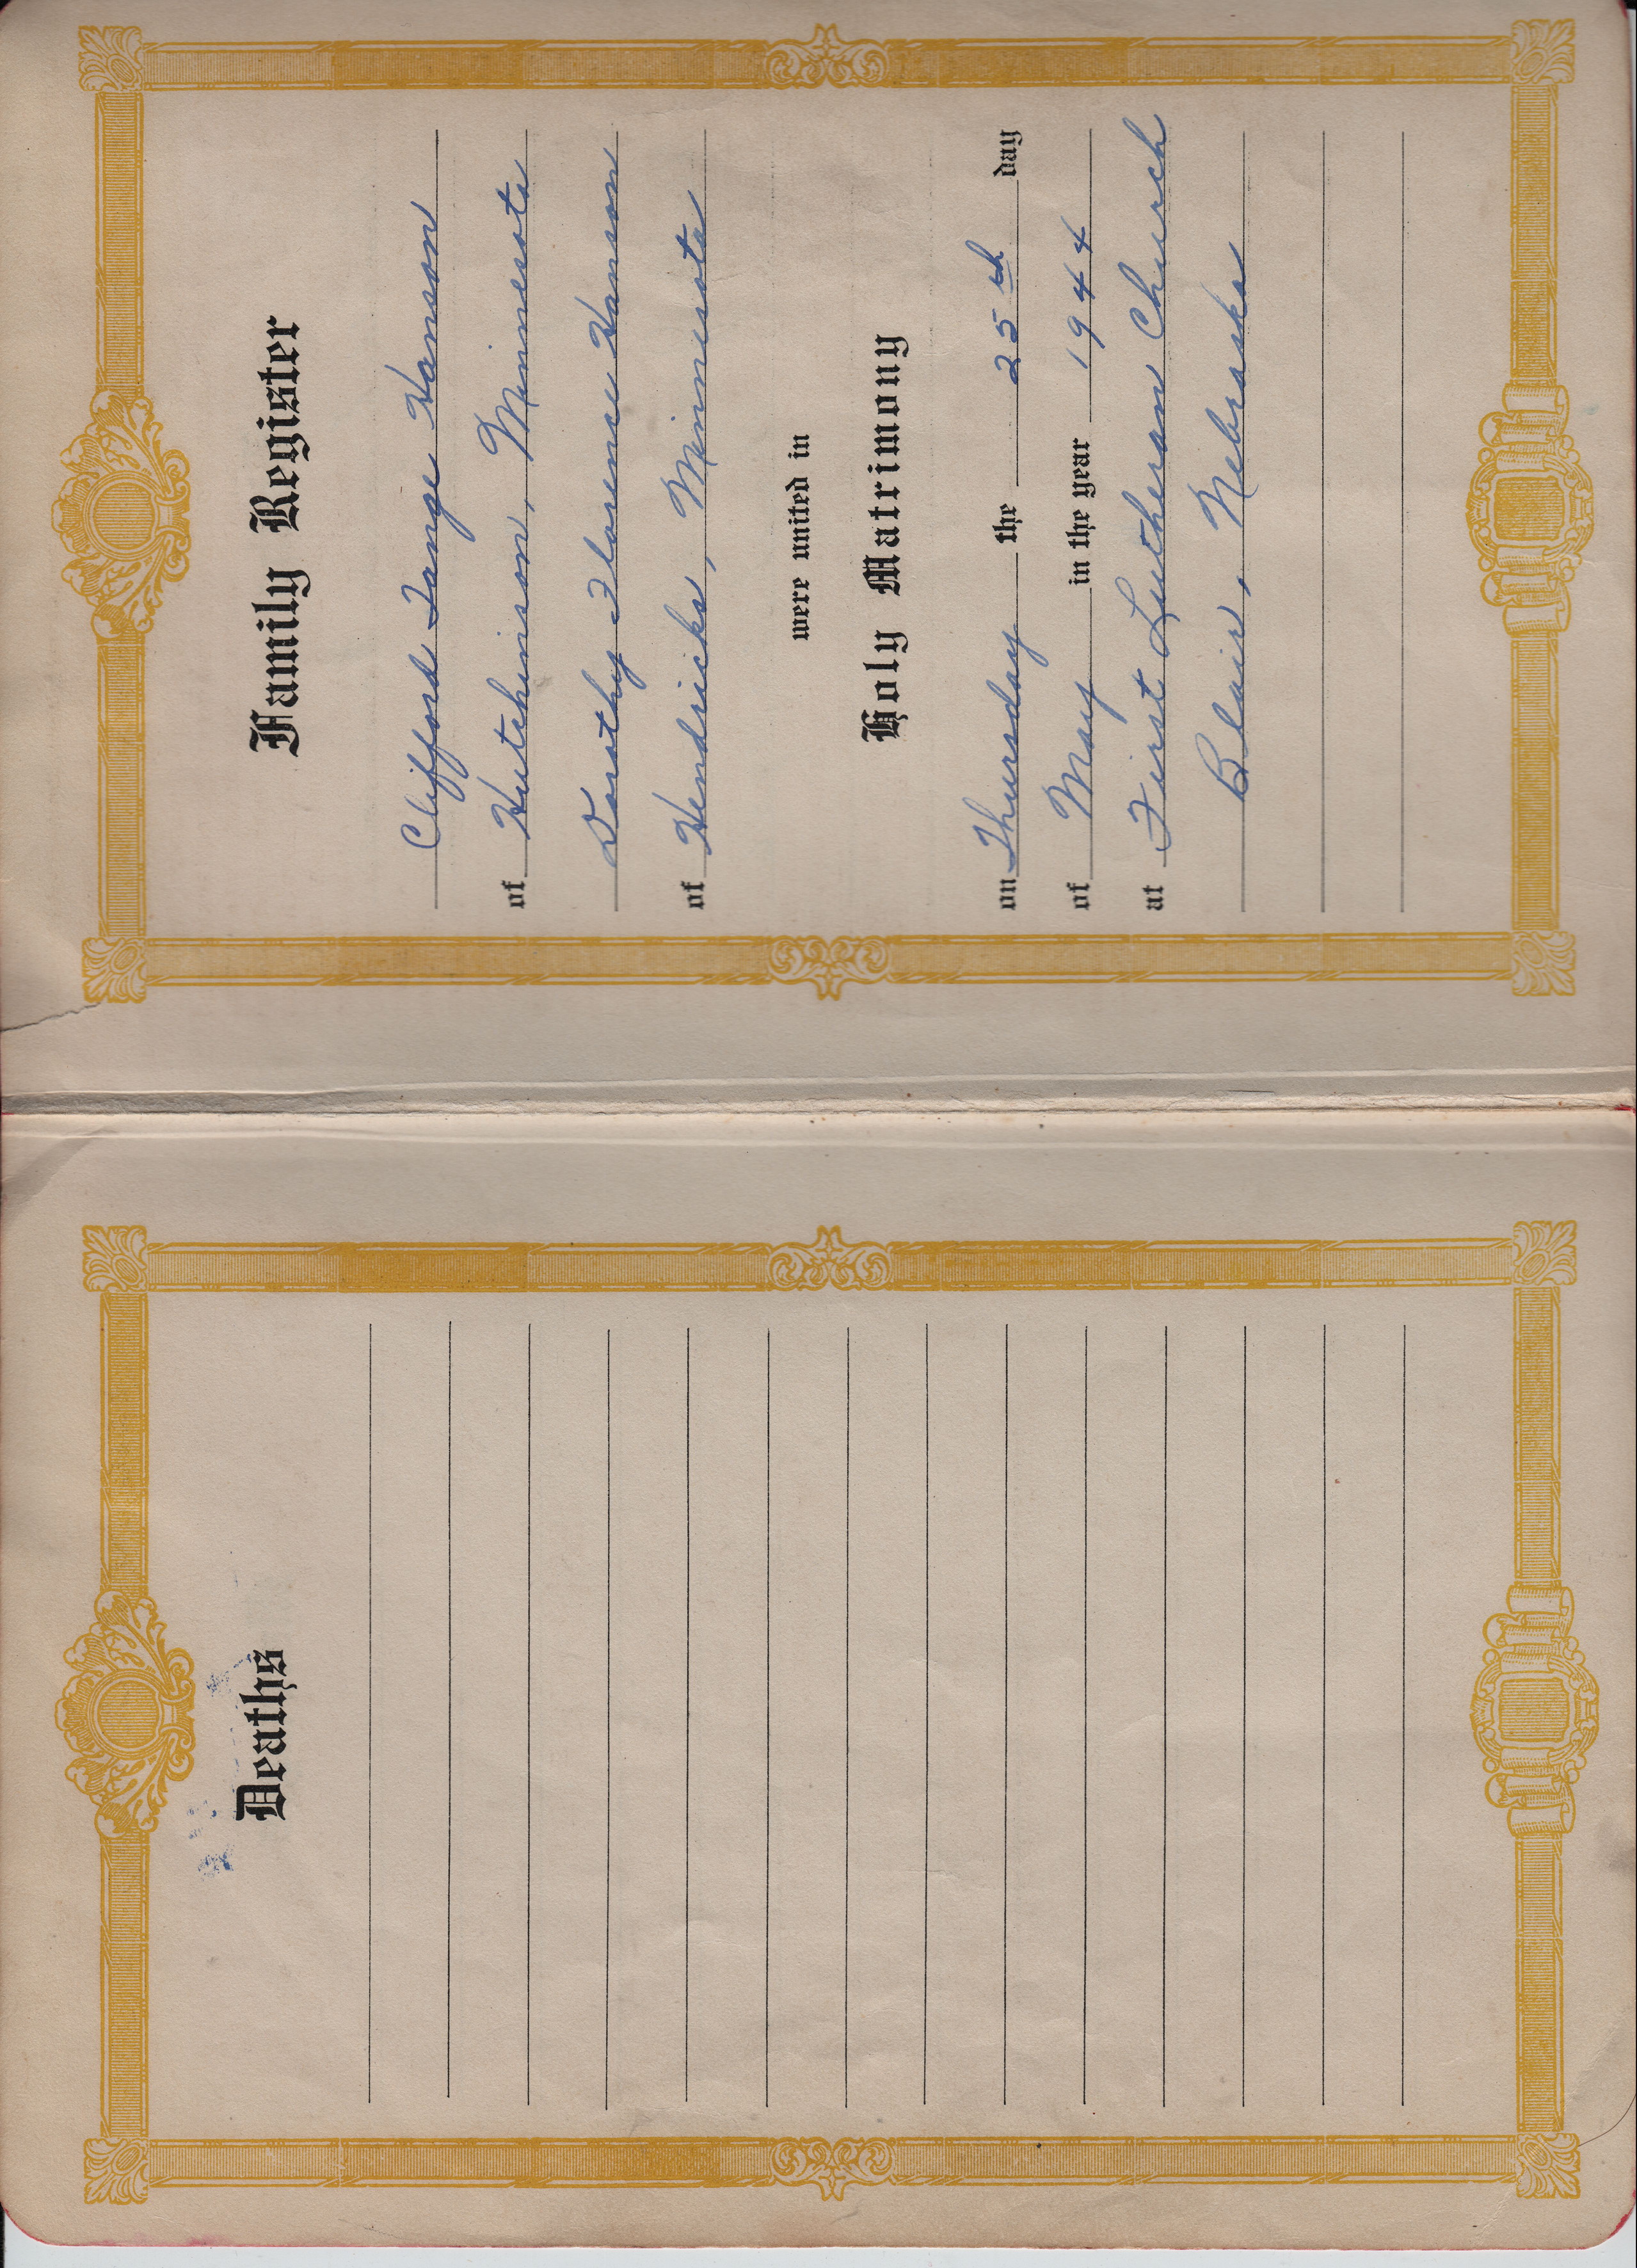 Deaths
Family Register
Clifford Tange Hanson
of Hutchinson, Minnesota
Dorothy Florence Hanson
of Hendricks, Minnesota
were united in
Holy Matrimony
on Thursday the 25th day
of May in the year 1944
at First Lutheran Church
Blair, Nebraska